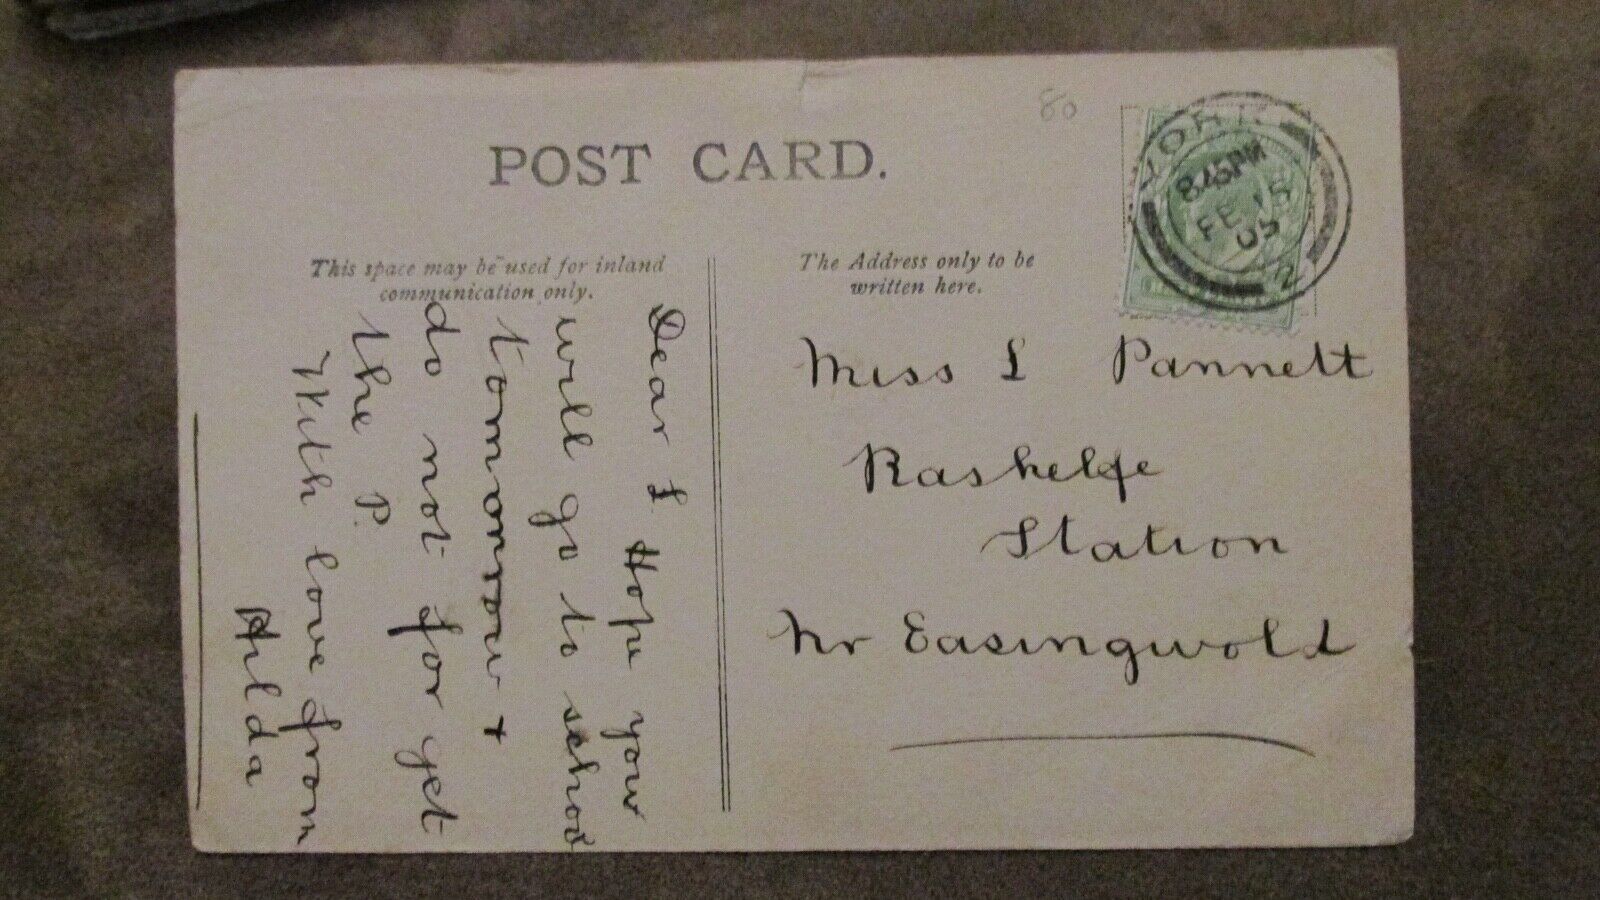 80
POST CARD.
YORK
8.45PM
FE 15
05
2
This space may be used for inland
communication only.
The Address only to be
written here.
Dear L Hope you
will go to school
tommorrow +
do not for get
the P.
With love from
Hilda
Miss L Pannett
Raskelfe
Station
Nr Easingwold